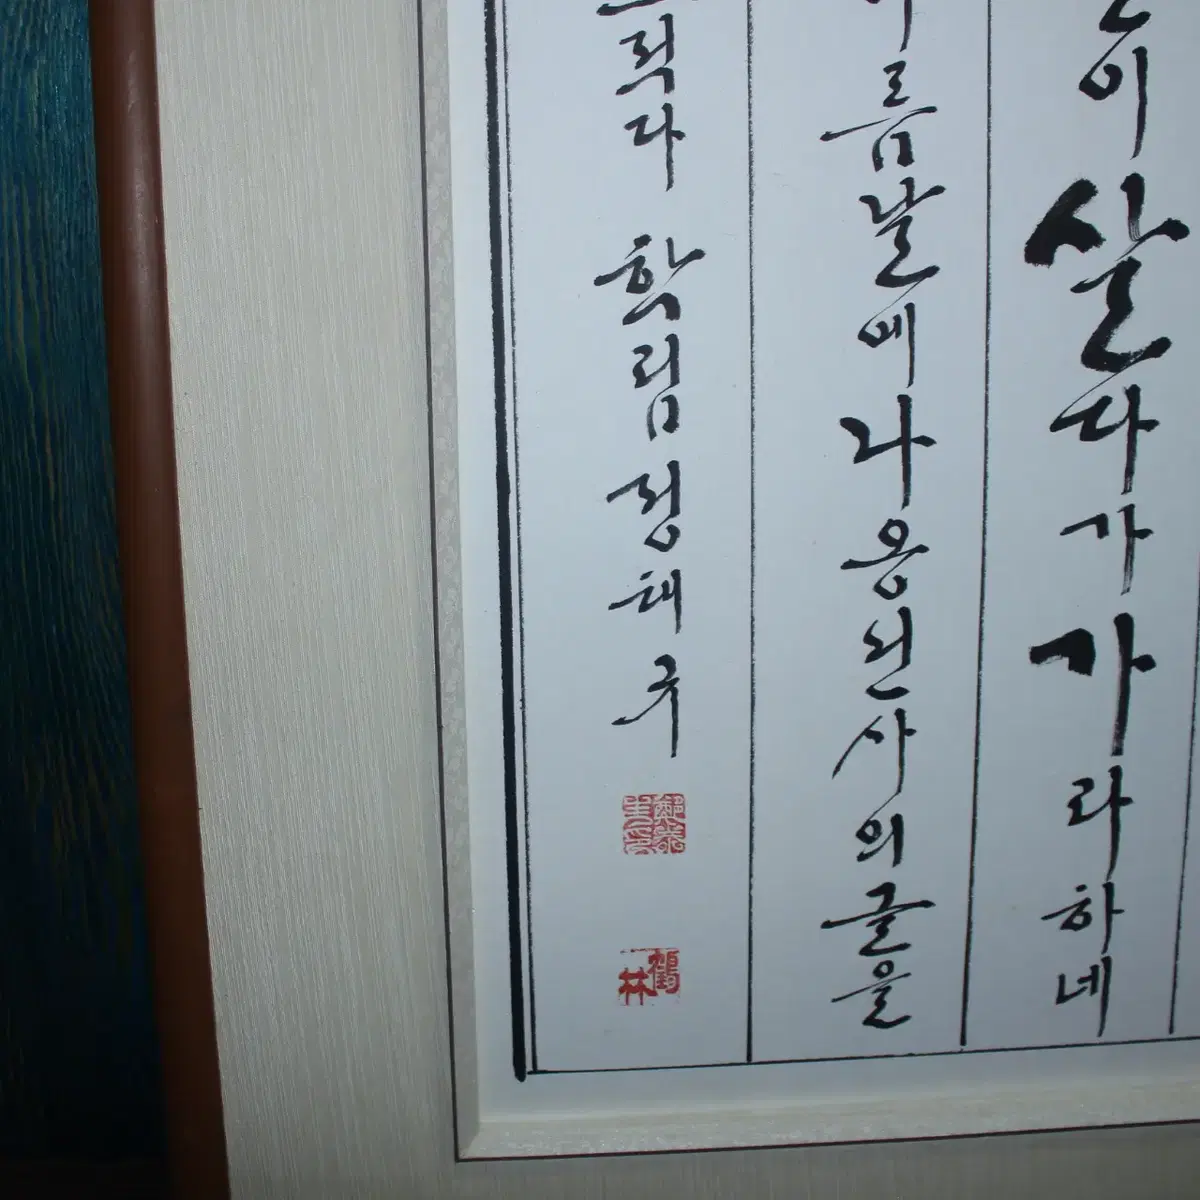 이 살다가 가라하네
름날에 나옹선사의 글을
적다 학림 정해국
鶴林